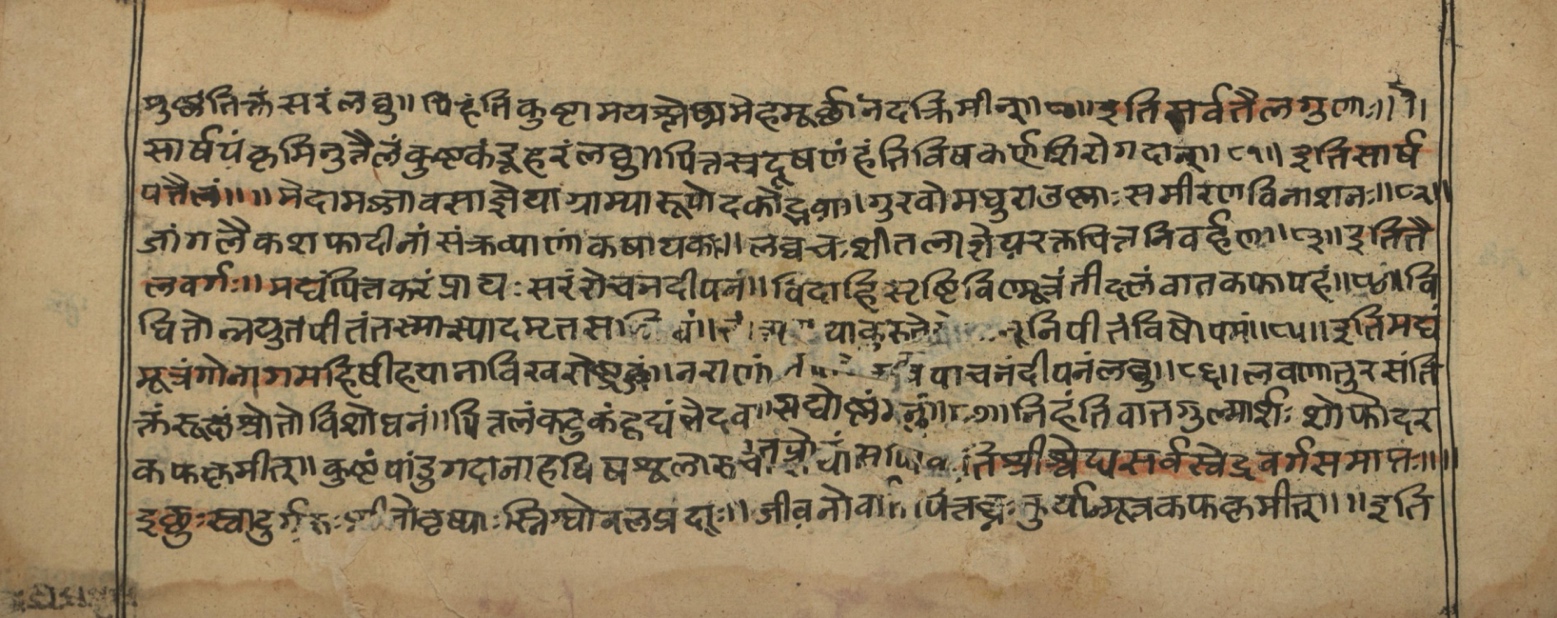 मुष्णंतिक्तं सरं लघु॥ पिहंति कुष्टामयश्लेष्ममेहमूर्छानदक्रिमीन्॥८०॥ इति सर्वतैलगुणाः॥
सार्षपं कृमिनुतैलं कुष्टकंडूहरं लघु॥ पित्तस्रदूषणं हंति विषकर्णशिरोगदान्॥८१॥ इति सार्ष
पतैलं॥॥ मेदामज्जावसाज्ञेया ग्राम्यारूपोदकौद्भवाः। गुरवो मधुरा उष्णाः समीरणविनाशनः॥८२॥
जांगलैकशफादीनां संक्रव्याणां कषायकाः॥ लघ्वचः शीतला ज्ञेया रक्तपित्तनिवर्हणाः॥८३॥ इति तै
लवर्गः॥ मद्यं पित्तकरं प्रायः सरं रोचनदीपनं॥ विदाहि सृष्टिविण्मूत्रं तीदलं वातकफापहं॥८४॥ वि
धितो न्नयुतपीतं तस्मास्पादमृतस याकुरुते निपीतं विषोपमं॥८५॥ इति मद्यं
मूत्रं गोनागमहिषीहयानाविखरोष्ट्रकं। नराणां पाचनं दीपनं लघु॥८६॥ लवणानुरसंति
क्तं रूक्षं श्रोतोविशोधनं॥ पित्तलं कटुकं हृद्यं भेदव॥ सद्योष्णं निहंति वातगुल्मार्शः शोफोदर
कफकृमीन्॥ कुष्टं पांडुगदानाहविषशूलारुचं सर्वस्वेदवर्गसमाप्तः॥॥
इक्षुः स्वादुर्गरुः वृष्यः स्निग्धो बलप्रदाः॥ जीवनो पित्तघ्नः कुर्यान्मूत्रकफकृमीन्॥॥ इति